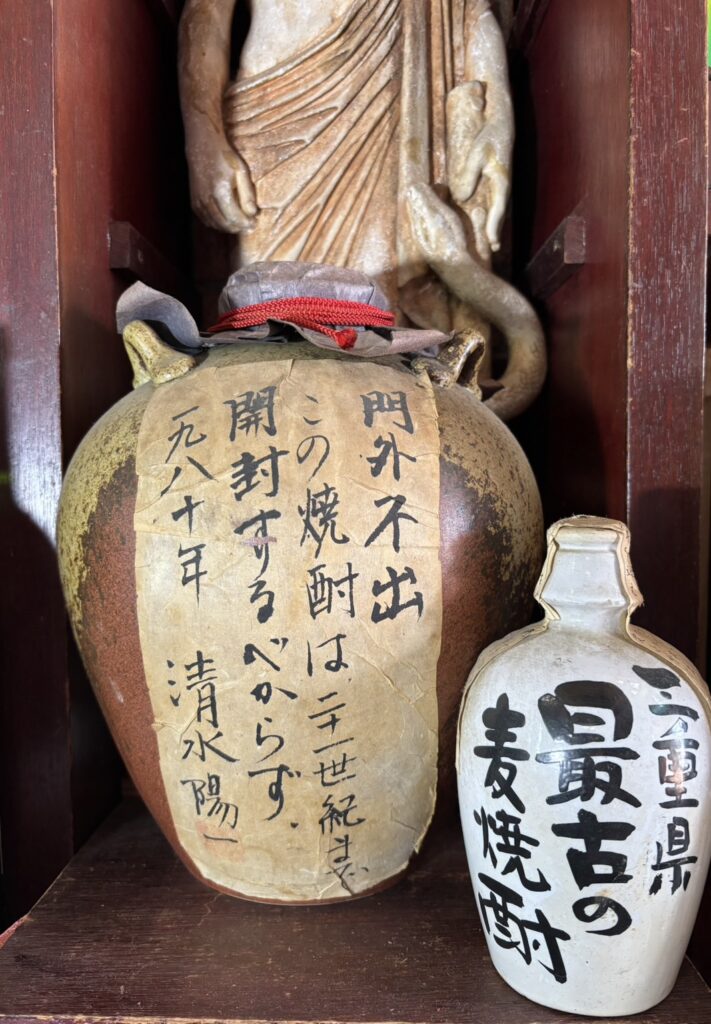 門外不出
この焼酎は二十一世紀まで
開封するべからず.
一九八十年 清水陽一
三重県
最古の
麦焼酎